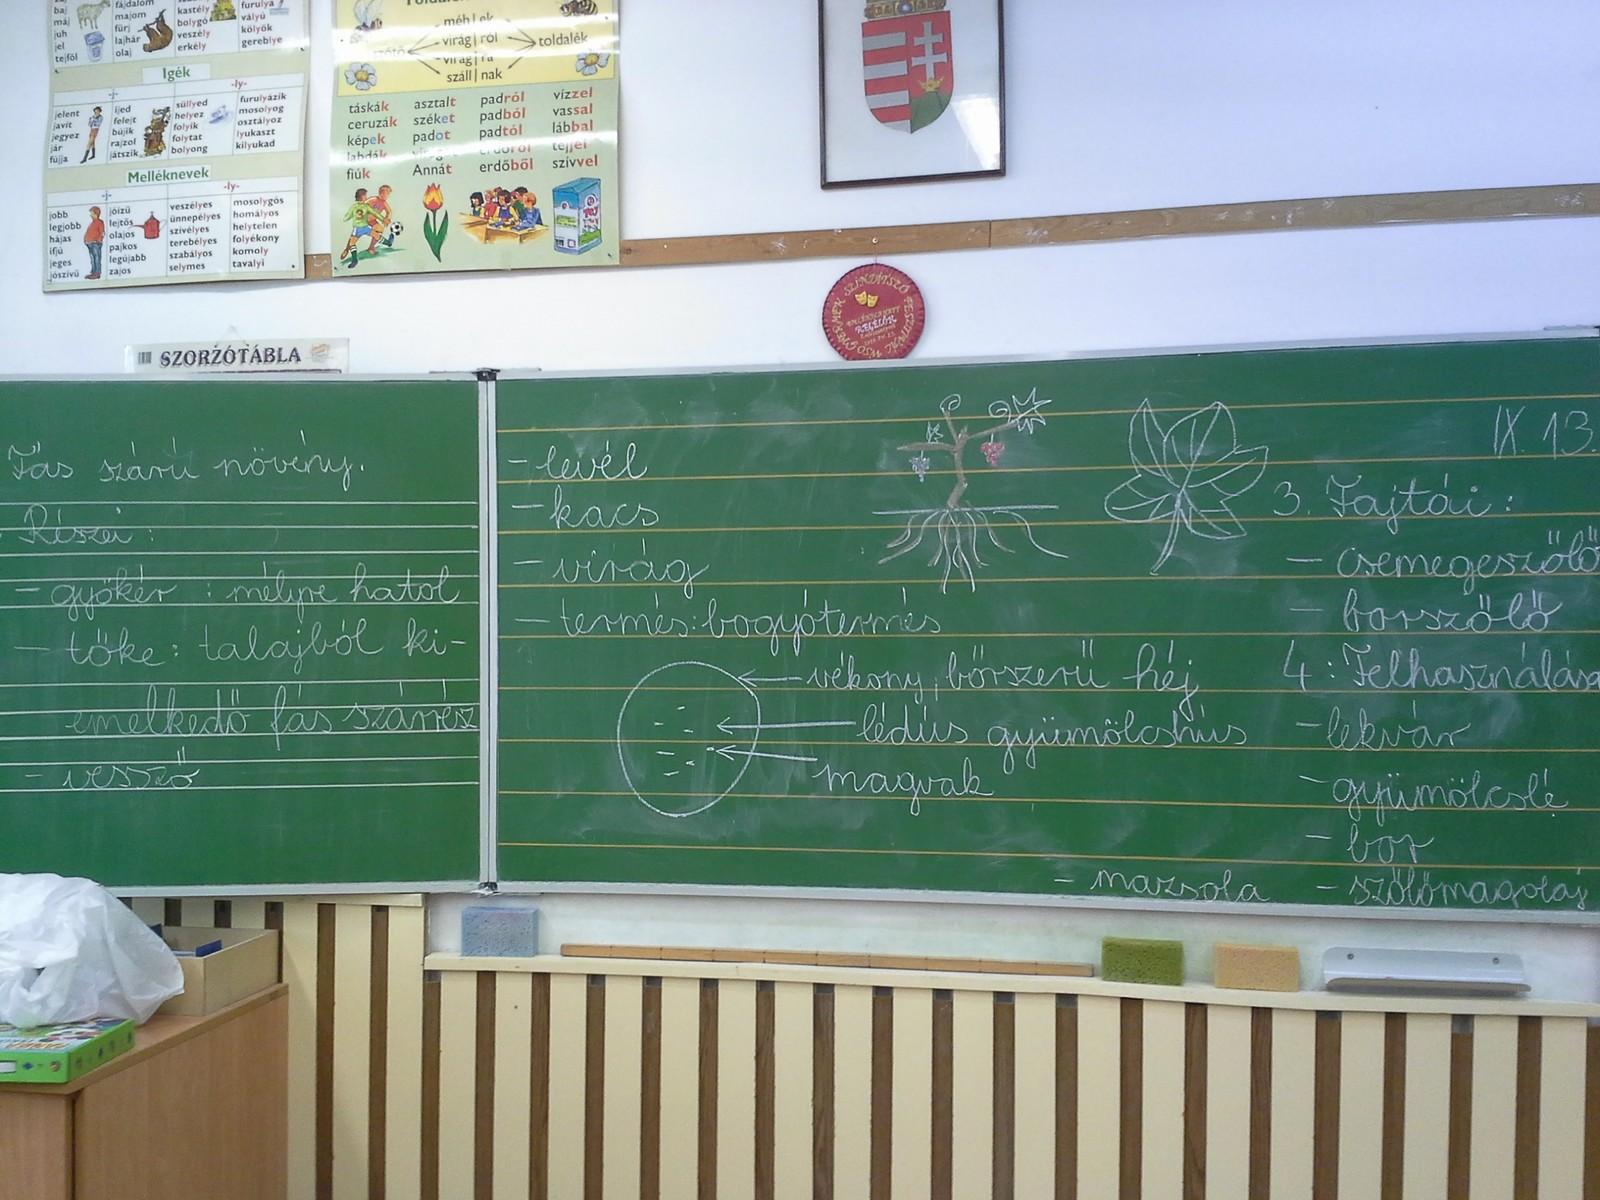 baj
máj
juh
jel
tejföl
fájdalom
majom
fürj
lajhár
olaj
kastély
bolygó
veszély
erkély
furulya
vályú
kölyök
gereblye
Igék
-j-
-ly-
jelent
javít
jegyez
jár
fújja
íjed
felejt
bújik
rajzol
játszik
süllyed
helyez
folyik
folytat
bolyong
furulyázik
mosolyog
osztályoz
lyukaszt
kilyukad
Melléknevek
-j-
-ly-
jobb
legjobb
hájas
ifjú
jeges
jószívű
jóízű
lejtős
olajos
pajkos
legújabb
zajos
veszélyes
ünnepélyes
szívélyes
terebélyes
szabályos
selymes
mosolygós
homályos
helytelen
folyékony
komoly
tavalyi
méh | ek
virág | ról
virág | ra
száll | nak
szótő
toldalék
táskák
ceruzák
képek
labdák
fiúk
asztalt
széket
padot
Annát
padról
padból
padtól
erdőről
erdőből
vízzel
vassal
lábbal
tejjel
szívvel
SZORZÓTÁBLA
Fás szárú növény.
Részei:
- gyökér : mélyre hatol
- tőke: talajból ki-
emelkedő fás szárrész
- vessző
- levél
- kacs
- virág
- termés: bogyótermés
vékony, bőrszerű héj
lédús gyümölcshús
magvak
IX. 13.
3. Fajtái:
- csemegeszőlő
- borszőlő
4. Felhasználása
- lekvár
- gyümölcslé
- bor
- mazsola - szőlőmagolaj